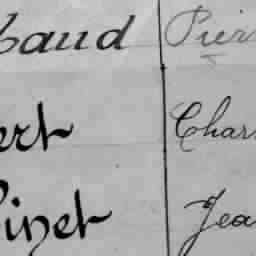 baud Pier
ert Char
inet Jea